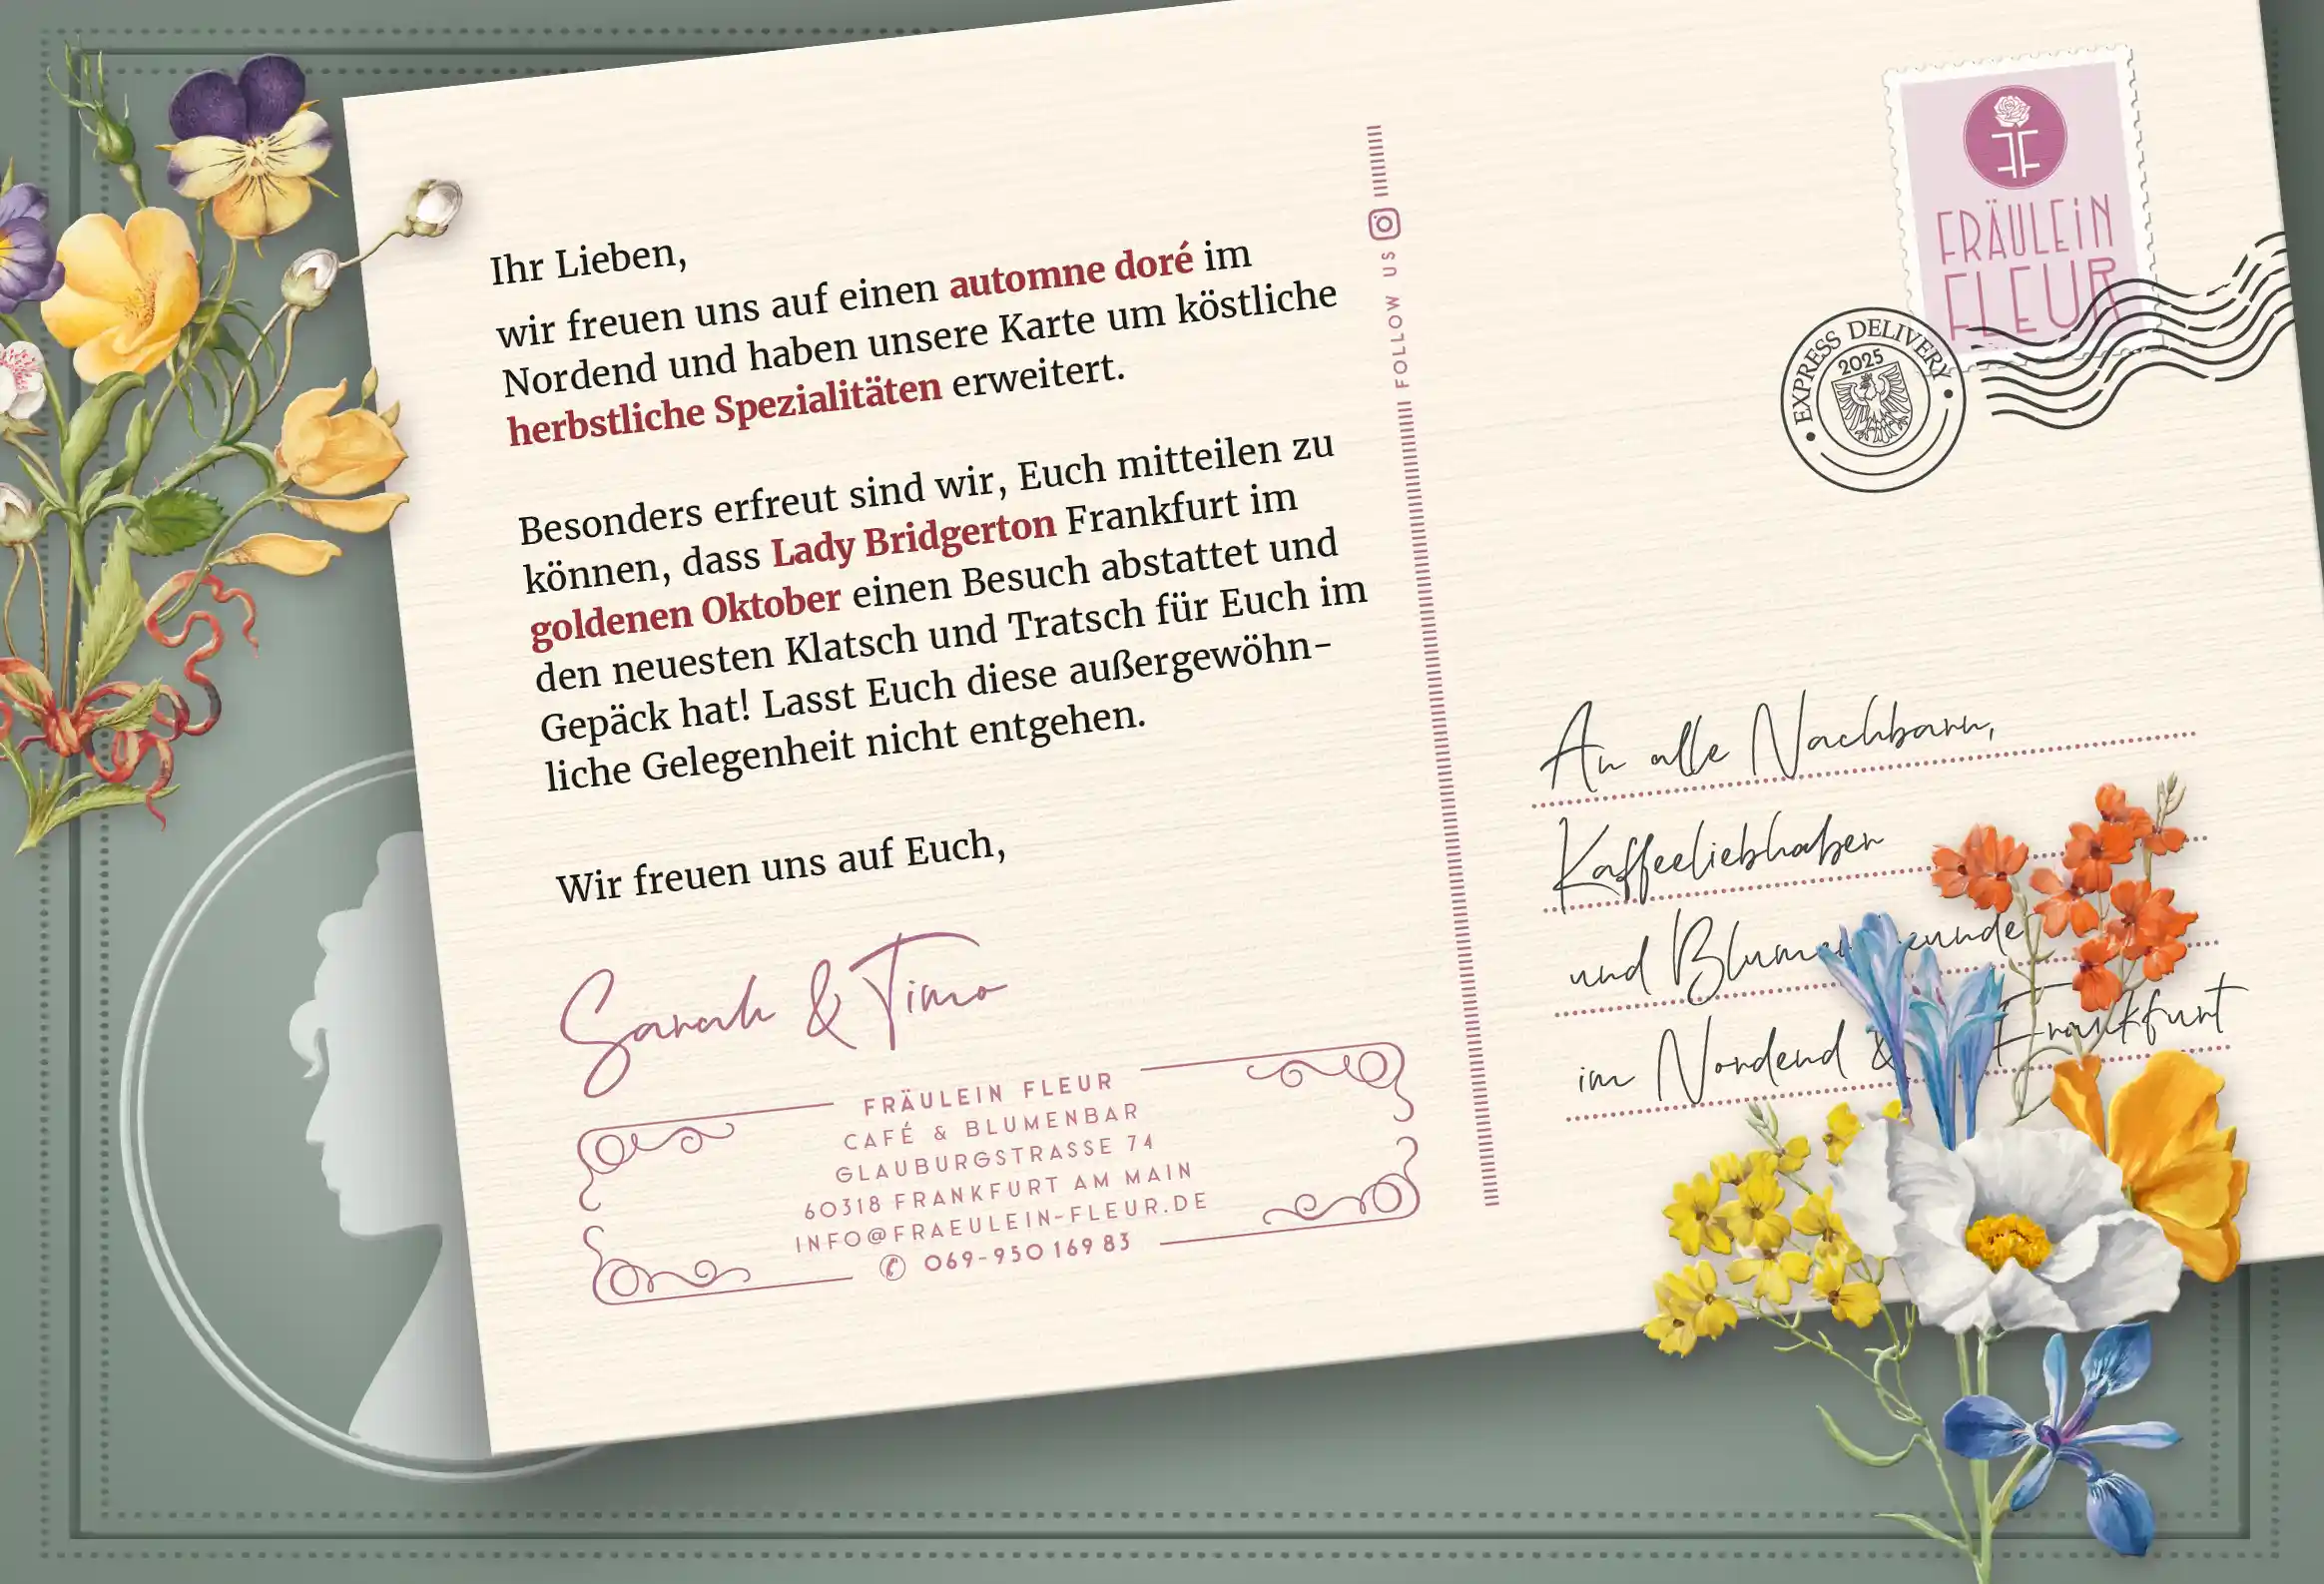 Ihr Lieben,
wir freuen uns auf einen automne doré im
Nordend und haben unsere Karte um köstliche
herbstliche Spezialitäten erweitert.
Besonders erfreut sind wir, Euch mitteilen zu
können, dass Lady Bridgerton Frankfurt im
goldenen Oktober einen Besuch abstattet und
den neuesten Klatsch und Tratsch für Euch im
Gepäck hat! Lasst Euch diese außergewöhn-
liche Gelegenheit nicht entgehen.
Wir freuen uns auf Euch,
Sarah & Timo
FRÄULEIN FLEUR
CAFÉ & BLUMENBAR
GLAUBURGSTRASSE 74
60318 FRANKFURT AM MAIN
INFO@FRAEULEIN-FLEUR.DE
✆ 069-950 169 83
FOLLOW US
FRÄULEIN
FLEUR
EXPRESS DELIVERY
2025
An alle Nachbarn,
Kaffeeliebhaber
und
im Nordend & Frankfurt